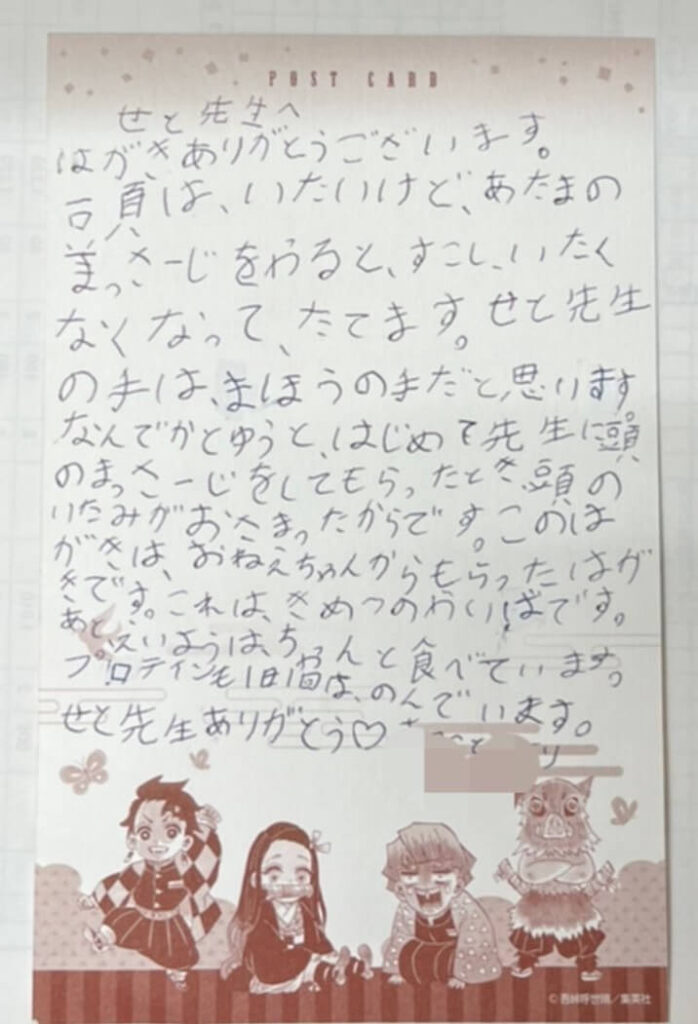 POST CARD
せと先生へ
はがきありがとうございます。
頭は、いたいけど、あたまの
まっさーじをやると、すこし、いたく
なくなって、たてます。せと先生
の手は、まほうの手だと思ります
なんでかとゆうと、はじめて先生に頭
のまっさーじをしてもらったとき頭の
いたみがおさまったからです。このは
がきは、おねえちゃんからもらったはが
きです。これは、きめつのやいばです。
あと、えいようは、ちゃんと食べています。
プロテインも1日1回は、のんでいます。
せと先生ありがとう♡
© 吾峠呼世晴／集英社